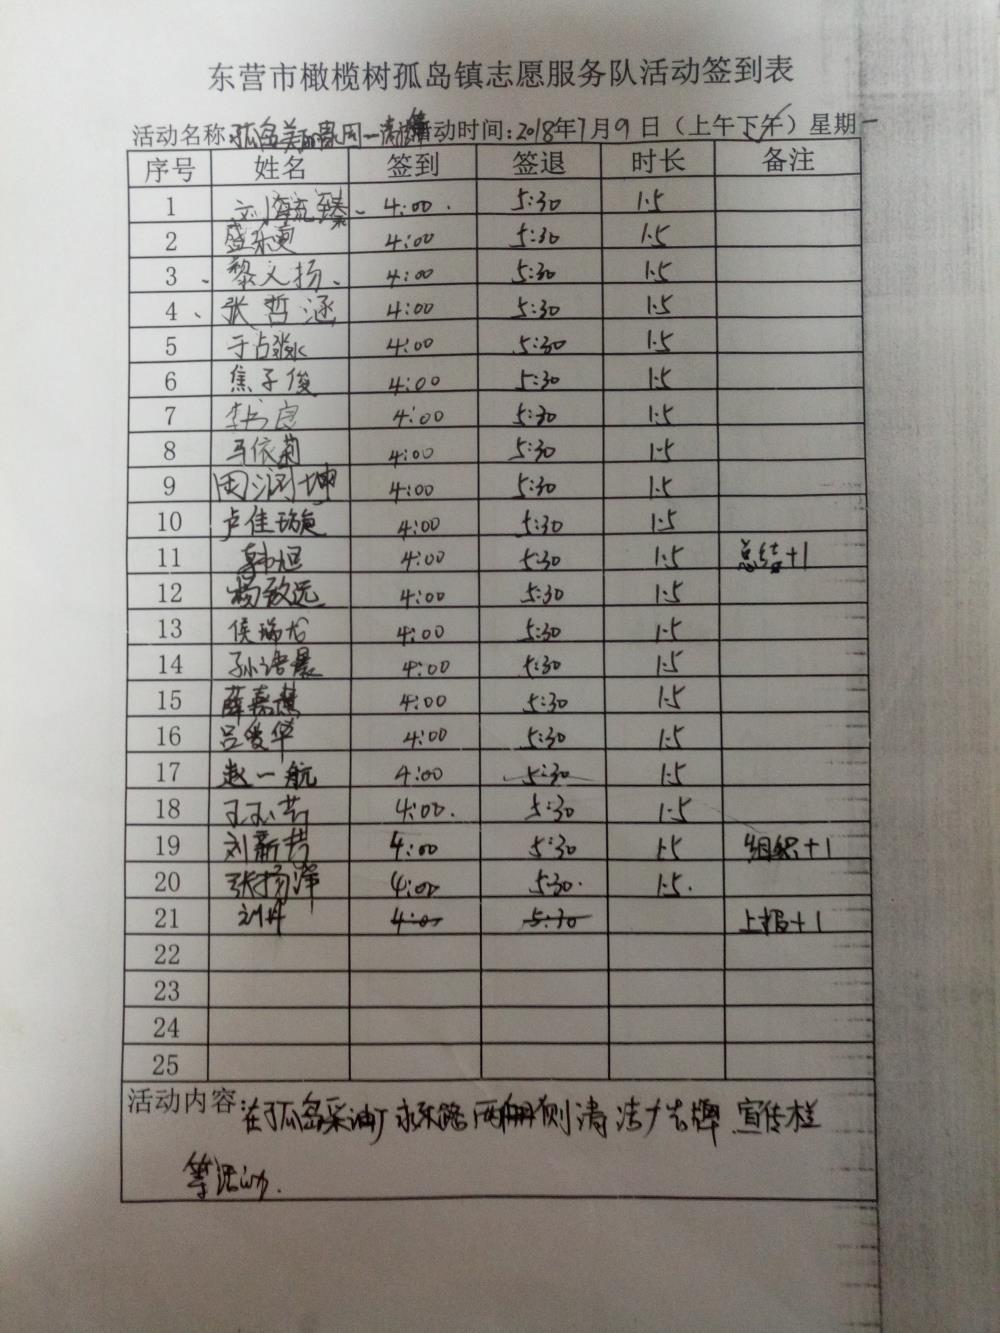 东营市橄榄树孤岛镇志愿服务队活动签到表
活动名称:孤岛美丽家园一清洁 活动时间:2018年7月9日（上午下午）星期一
序号 姓名 签到 签退 时长 备注
1 刘 臻 4:00 5:30 1.5
2 盛 4:00 5:30 1.5
3 黎文扬 4:00 5:30 1.5
4 张哲涵 4:00 5:30 1.5
5 于占淼 4:00 5:30 1.5
6 焦子俊 4:00 5:30 1.5
7 李书良 4:00 5:30 1.5
8 马依莉 4:00 5:30 1.5
9 田润坤 4:00 5:30 1.5
10 卢佳璇 4:00 5:30 1.5
11 韩旭 4:00 5:30 1.5 总结+1
12 杨致远 4:00 5:30 1.5
13 侯瑞龙 4:00 5:30 1.5
14 孙浩晨 4:00 5:30 1.5
15 薛嘉慧 4:00 5:30 1.5
16 吕爱华 4:00 5:30 1.5
17 赵一航 4:00 5:30 1.5
18 王 4:00 5:30 1.5
19 刘新芳 4:00 5:30 1.5 组织+1
20 张扬洋 4:00 5:30 1.5
21 刘丹 4:00 5:30 上报+1
22
23
24
25
活动内容:在孤岛采油厂 路两侧清洁广告牌 宣传栏
等活动.